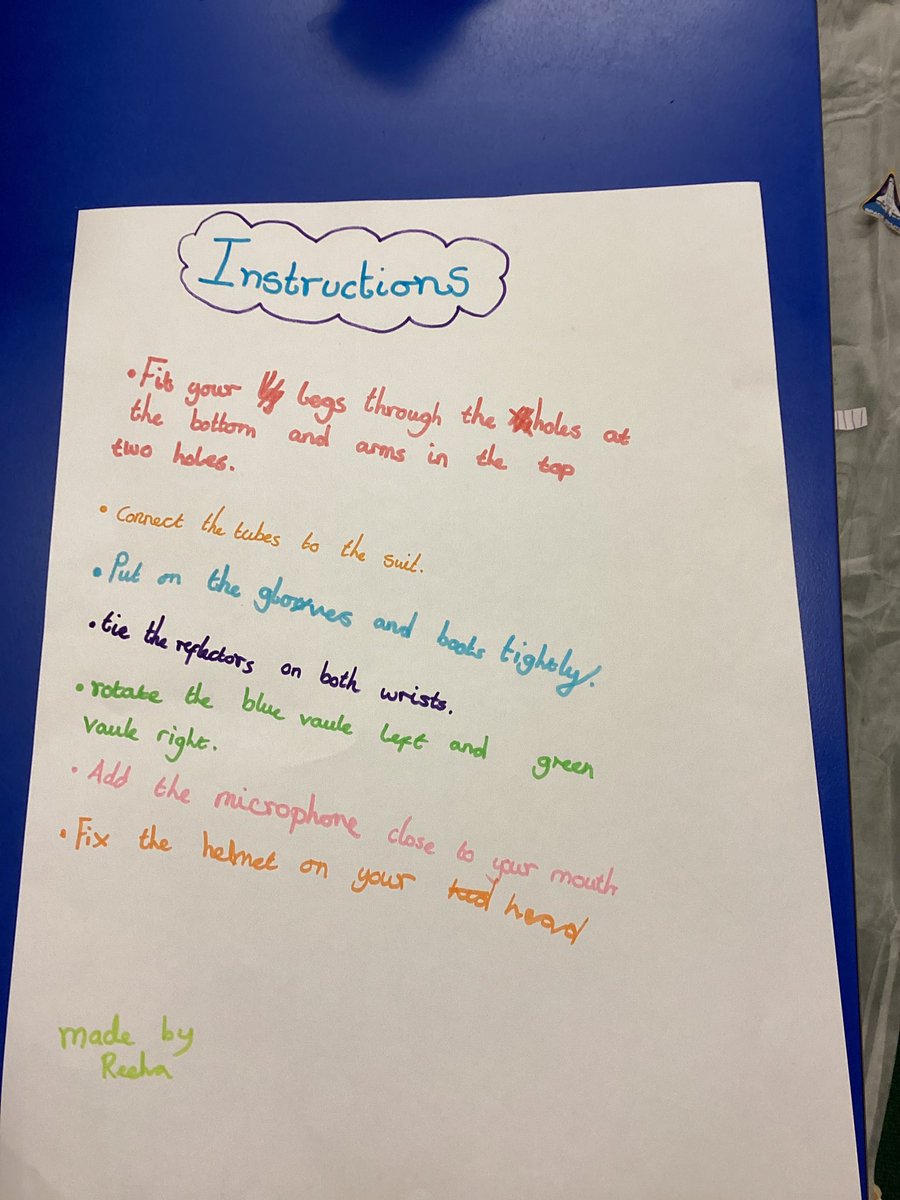 Instructions
• Fit your legs through the holes at
the bottom and arms in the top
two holes.
• connect the tubes to the suit.
• Put on the gloves and boots tightly.
• tie the reflectors on both wrists.
• rotate the blue vaule left and green
vaule right.
• Add the microphone close to your mouth
• Fix the helmet on your head
made by
Reeha